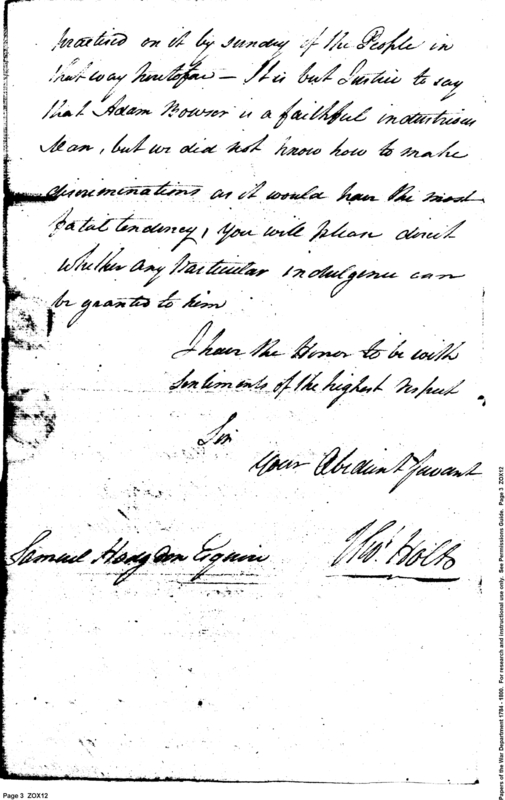 practised on it by sundry of the People in
that way heretofore – It is but Justice to say
that Adam Bowser is a faithful industrious
Man, but we did not know how to make
discriminations as it would have the most
fatal tendency, you will please direct
whether any Particular indulgence can
be granted to him
I have the Honor to be with
Sentiments of the highest respect
Sir
Your Obedient Servant
Samuel Hodgdon Esquire
Thos. Holt
Page 3 ZOX12
Papers of the War Department 1784 - 1800. For research and instructional use only. See Permissions Guide. Page 3 ZOX12